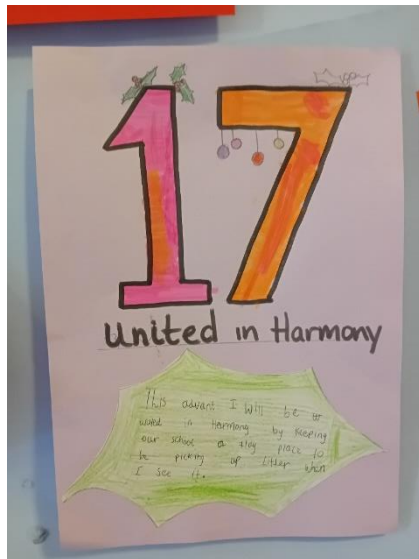 17
United in Harmony
This advant I will be
in Harmony by keeping
our school a place to
be picking up litter when
I see it.